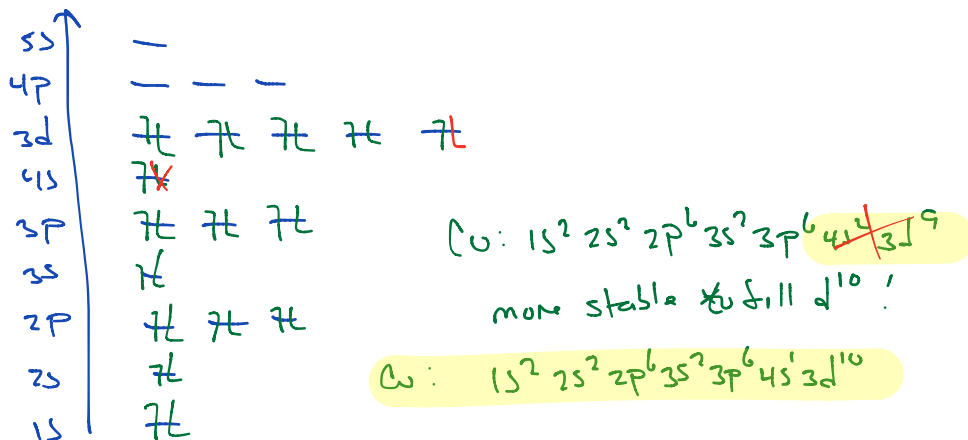 5s
4p
3d
4s
3p
Cu: 1s² 2s² 2p⁶ 3s² 3p⁶ 4s² 3d⁹
3s
more stable to fill d¹⁰ !
2p
2s
Cu: 1s² 2s² 2p⁶ 3s² 3p⁶ 4s¹ 3d¹⁰
1s